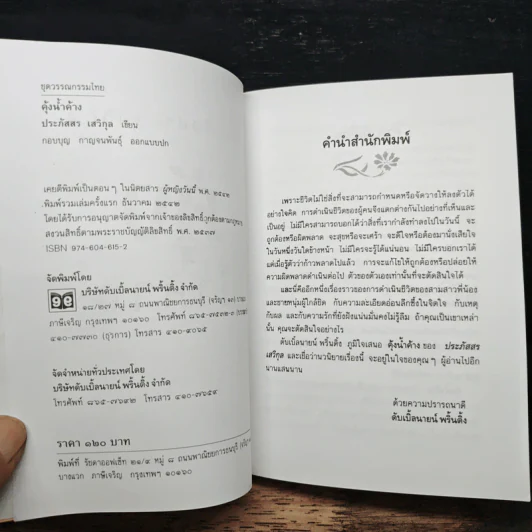 ยุควรรณกรรมไทย
คุ้งน้ำค้าง
ประภัสสร เสวิกุล เขียน
กอบบุญ กาญจนพันธุ์ ออกแบบปก
เคยตีพิมพ์เป็นตอนๆ ในนิตยสาร ผู้หญิงวันนี้ พ.ศ. ๒๕๔๒
พิมพ์รวมเล่มครั้งแรก ธันวาคม ๒๕๔๒
โดยได้รับการอนุญาตจัดพิมพ์จากเจ้าของลิขสิทธิ์ถูกต้องตามกฎหมาย
สงวนลิขสิทธิ์ตามพระราชบัญญัติลิขสิทธิ์ พ.ศ. ๒๕๓๗
ISBN 974-604-615-2
จัดพิมพ์โดย
บริษัทดับเบิ้ลนายน์ พริ้นติ้ง จำกัด
๑๘/๒๗ หมู่ ๘ ถนนพาณิชยการธนบุรี
ภาษีเจริญ กรุงเทพฯ ๑๐๑๖๐ โทรศัพท์
๔๑๐-๗๗๕๐ (ธุรการ) โทรสาร ๔๑๐-๔๐๖๕
จัดจำหน่ายทั่วประเทศโดย
บริษัทดับเบิ้ลนายน์ พริ้นติ้ง จำกัด
โทรศัพท์ ๘๖๕-๗๖๙๒ โทรสาร ๔๑๐-๗๖๕๙
ราคา ๑๒๐ บาท
พิมพ์ที่ รัยดาออฟเซ็ท ๒๑/๙ หมู่ ๘ ถนนพาณิชยการธนบุรี
บางแวก ภาษีเจริญ กรุงเทพฯ ๑๐๑๖๐
คำนำสำนักพิมพ์
เพราะชีวิตไม่ใช่สิ่งที่จะสามารถกำหนดหรือจัดวางให้ลงตัวได้
อย่างใจคิด การดำเนินชีวิตของผู้คนจึงแตกต่างกันไปอย่างที่เห็นและ
เป็นอยู่ ไม่มีใครสามารถบอกได้ว่าสิ่งที่เรากำลังทำลงไปในวันนี้ จะ
ถูกต้องหรือผิดพลาด จะสุขหรือจะเศร้า จะดีใจหรือต้องมานั่งเสียใจ
ในวันหนึ่งวันใดข้างหน้า ไม่มีใครจะรู้ได้แน่นอน ไม่มีใครบอกเราได้
แต่เมื่อรู้ตัวว่าก้าวพลาดไปแล้ว การจะแก้ไขให้ถูกต้องหรือปล่อยให้
ความผิดพลาดดำเนินต่อไป ตัวของตัวเองเท่านั้นที่จะตัดสินใจได้
และนี่คืออีกหนึ่งเรื่องราวของการดำเนินชีวิตของสามสาวพี่น้อง
และชายหนุ่มผู้ใกล้ชิด กับความละเอียดอ่อนลึกซึ้งในจิตใจ กับเหตุ
กับผล และกับความรักที่ยังฝังแน่นมั่นคงไม่รู้ลืม ถ้าคุณเป็นเขาเหล่า
นั้น คุณจะตัดสินใจอย่างไร
ดับเบิ้ลนายน์ พริ้นติ้ง ภูมิใจเสนอ คุ้งน้ำค้าง ของ ประภัสสร
เสวิกุล และเชื่อว่านวนิยายเรื่องนี้ จะอยู่ในใจของคุณๆ ผู้อ่านไปอีก
นานแสนนาน
ด้วยความปรารถนาดี
ดับเบิ้ลนายน์ พริ้นติ้ง